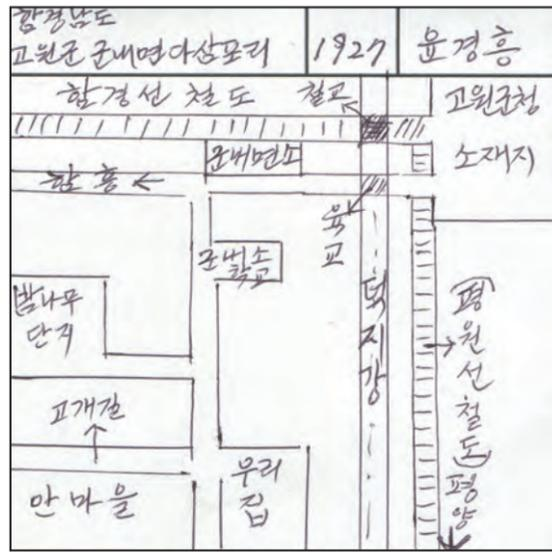 함경남도
고원군 군내면 다삼포리
1927
윤경흥
함경선 철도
철교
고원군청
소재지
군내면소
함흥 ←
육교
군내소
학교
덕지강
밤나무
단지
(평원선철도)평양
고개길
안마을
우리
집